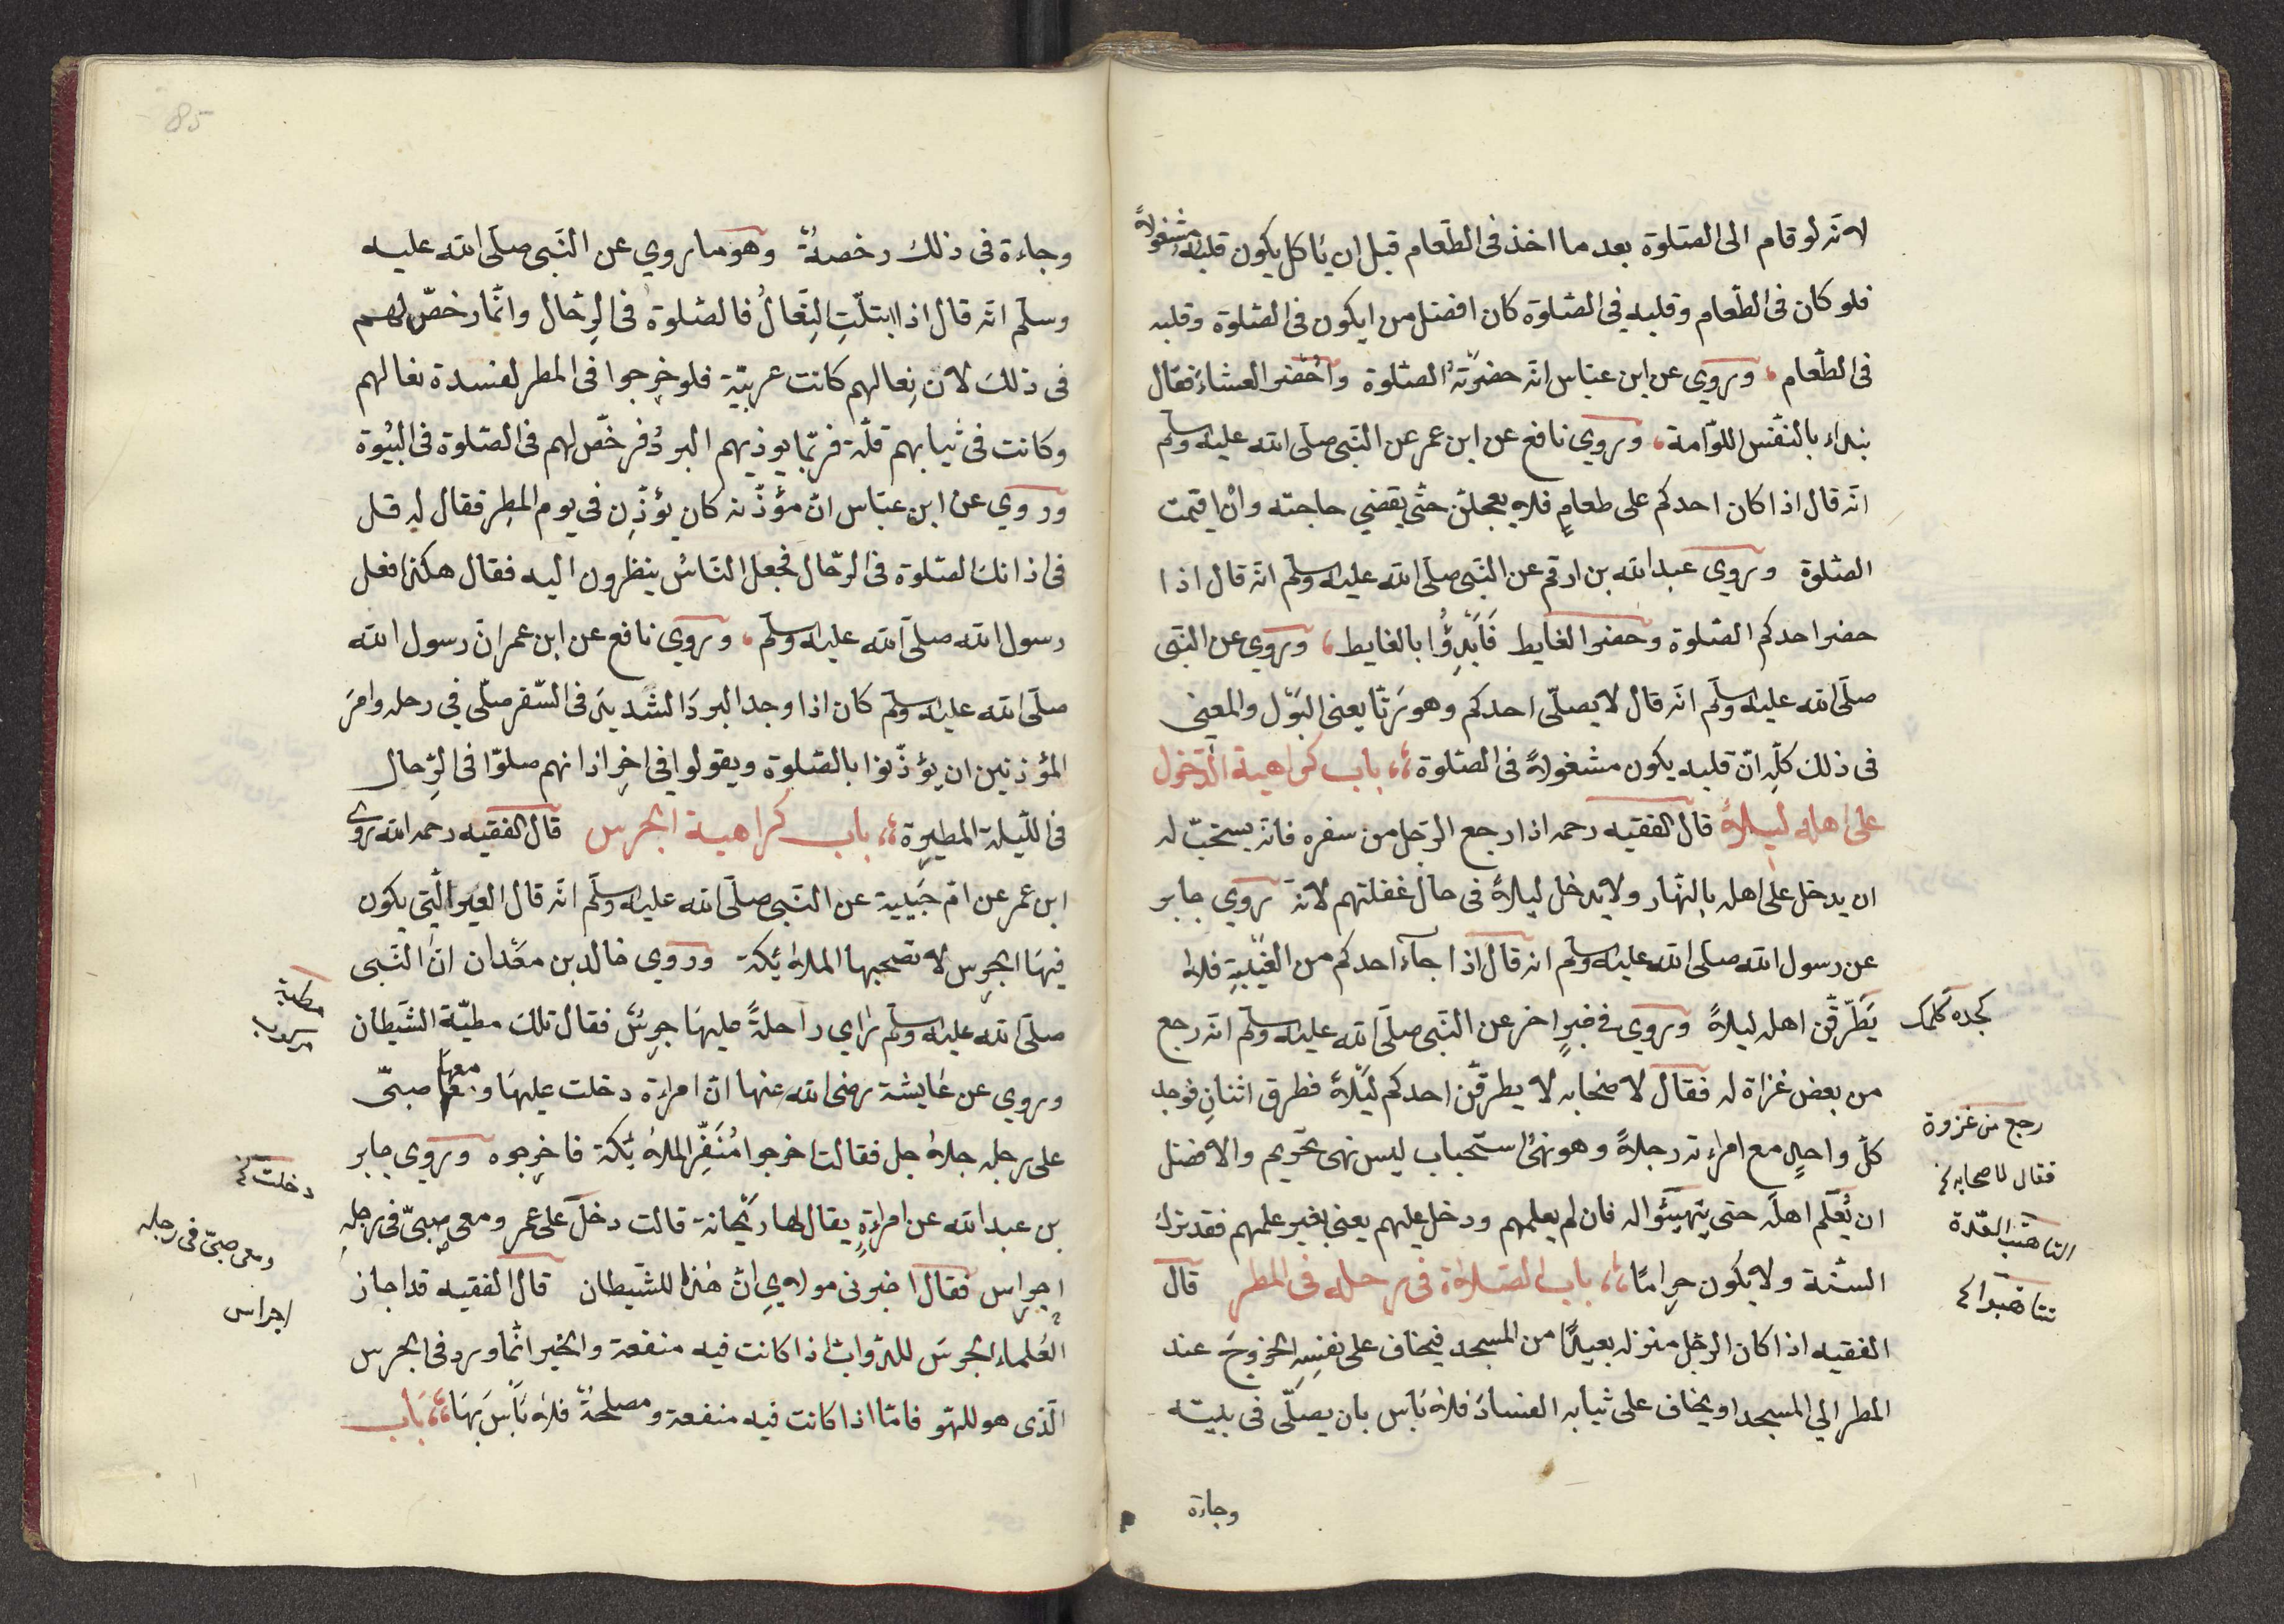 لانّه لو قام الى الصّلوة بعد ما اخذ فى الطّعام قبل ان يأكل يكون قلبه مشغولاً
فلو كان فى الطّعام وقلبه فى الصّلوة كان افضل من ايكون فى الصّلوة وقلبه
فى الطّعام، وروي عن ابن عبّاس انّه حضرّتهُ الصّلوة واُحْضر العشاء فقال
نبداء بالنفْس اللوّامة، وروي نافع عن ابن عمر عن النّبى صلّى الله عليه وسلّم
انّه قال اذا كان احدكم على طعامٍ فلا يعجلنّ حتّى يقضي حاجته وانْ اقيمت
الصّلوة وروي عبد الله بن ارقم عن النّبى صلّى الله عليه وسلّم انّه قال اذا
حضر احدكم الصّلوة وحضر الغايط فَابْدِؤُا بالغايط، وروي عن النّبى
صلّى الله عليه وسلّم انّه قال لا يصلّى احدكم وهو زنّا يعنى البَوْل والمعني
فى ذلك كلّه انّ قلبه يكون مشغولاً فى الصّلوة،، باب كراهية الدّخول
على اهله ليلاً قال الفقيه رحمه اذا رجع الرّجل من سفره فانّه يستحبّ له
ان يدخل على اهله بالنّهار ولا يدخل ليلاً فى حال غفلتهم لانّه روي جابر
عن رسول الله صلى الله عليه وسلّم انه قال اذا جآء احدكم من الغَيْبةِ فلا
يَطّرقّن اهله ليلاً وروي في خبرٍ اخر عن النّبى صلّى الله عليه وسلّم انّه رجع
من بعض غزاة له فقال لاصحابه لا يطرقّن احدكم ليْلاً فطرق اثنان فوجد
كلّ واحدٍ مع امراءته رجلاً وهو نهىُ استحباب ليس نهى تحريم والافضل
ان يُعْلم اهلَه حتى يتهيّئوا له فان لم يعلمهم ودخل عليهم يعنى بغير علمهم فقد ترك
السنّة ولا يكون حرامًا،، باب الصّلاة فى رحله فى المطر قال
الفقيه اذا كان الرجل منزله بعيدًا من المسجد فيخاف على نفسِهِ الخروجَ عند
المطر الي المسجد او يخاف على ثيابه الفسادَ فلا بَأس بان يصلّى فى بيته
وجاءة
كجده كلمك
رجع من غزوة
فقال لاصحابه
التاهّب العُدة
تتاهّبوا
85
وجاءة فى ذلك رخصةٌ وهو ما روي عن النّبى صلّى الله عليه
وسلّم انّه قال اذا ابتلّتِ النِّعالُ فالصّلوةُ فى الرّحال وانّما رخصّ لهم
فى ذلك لانّ نِعالهم كانت عربيّة فلو خرجوا فى المطر لفسدة نعالهم
وكانت فى ثيابهم قلّة فربّما يوذيهم البردُ فرخّص لهم فى الصّلوة فى البيُوة
وروي عن ابن عبّاس انّ مؤذّنه كان يؤذّن فى يوم المطِر فقال له قل
فى اذانك الصّلوة فى الرّحال فجعل النّاسُ ينظرون اليه فقال هكذا فعل
رسول الله صلّى الله عليه وسلّم، وروي نافع عن ابن عمر انّ رسول الله
صلّى الله عليه وسلّم كان اذا وجد البردَ الشديدَ فى السّفر صلّى في رحله وامرَ
المؤذنين ان يؤذّنوا بالصّلوة ويقولوا فى اخرِ اذانهم صلوّا فى الرّحال
فى اللّيلة المطيرة،، باب كراهية الجرس قال الفقيه رحمه الله روى
ابن عمر عن امّ حَبيبة عن النّبى صلّى الله عليه وسلّم انّه قال العَير الّتى يكون
فيهَا الجرس لا تصحبها الملائكة وروي خالد بن معْدان انّ النّبى
صلّى الله عليه وسلّم راي راحلةً عليهَا جرسٌ فقال تلك مطيّة الشّيطان
وروي عن عايشة رضى الله عنها انّ امراءة دخلت عليهَا ومعها صبىّ
على رجله جلاجل فقالت اخرجوا مُنَفّر الملائكة فاخرجوه وروي جابر
بن عبد الله عن امراءةٍ يقال لها رَيْحانة قالت دخل على عمر ومعى صبىّ فى رجله
اجراس فقال اخبرنى مولاي انّ هذا للشّيطان قال الفقيه قد اجاز
العُلماء الجرسَ للدّوابّ اذا كانت فيه منفعة والخبر انّما ورد فى الجرس
الّذى هو للهّو فامّا اذا كانت فيه منفعة ومصلحةٌ فلا بَأسَ بهَا،، باب
مطية
مركوب
دخلت
ومعى صبىّ فى رجله
اجراس